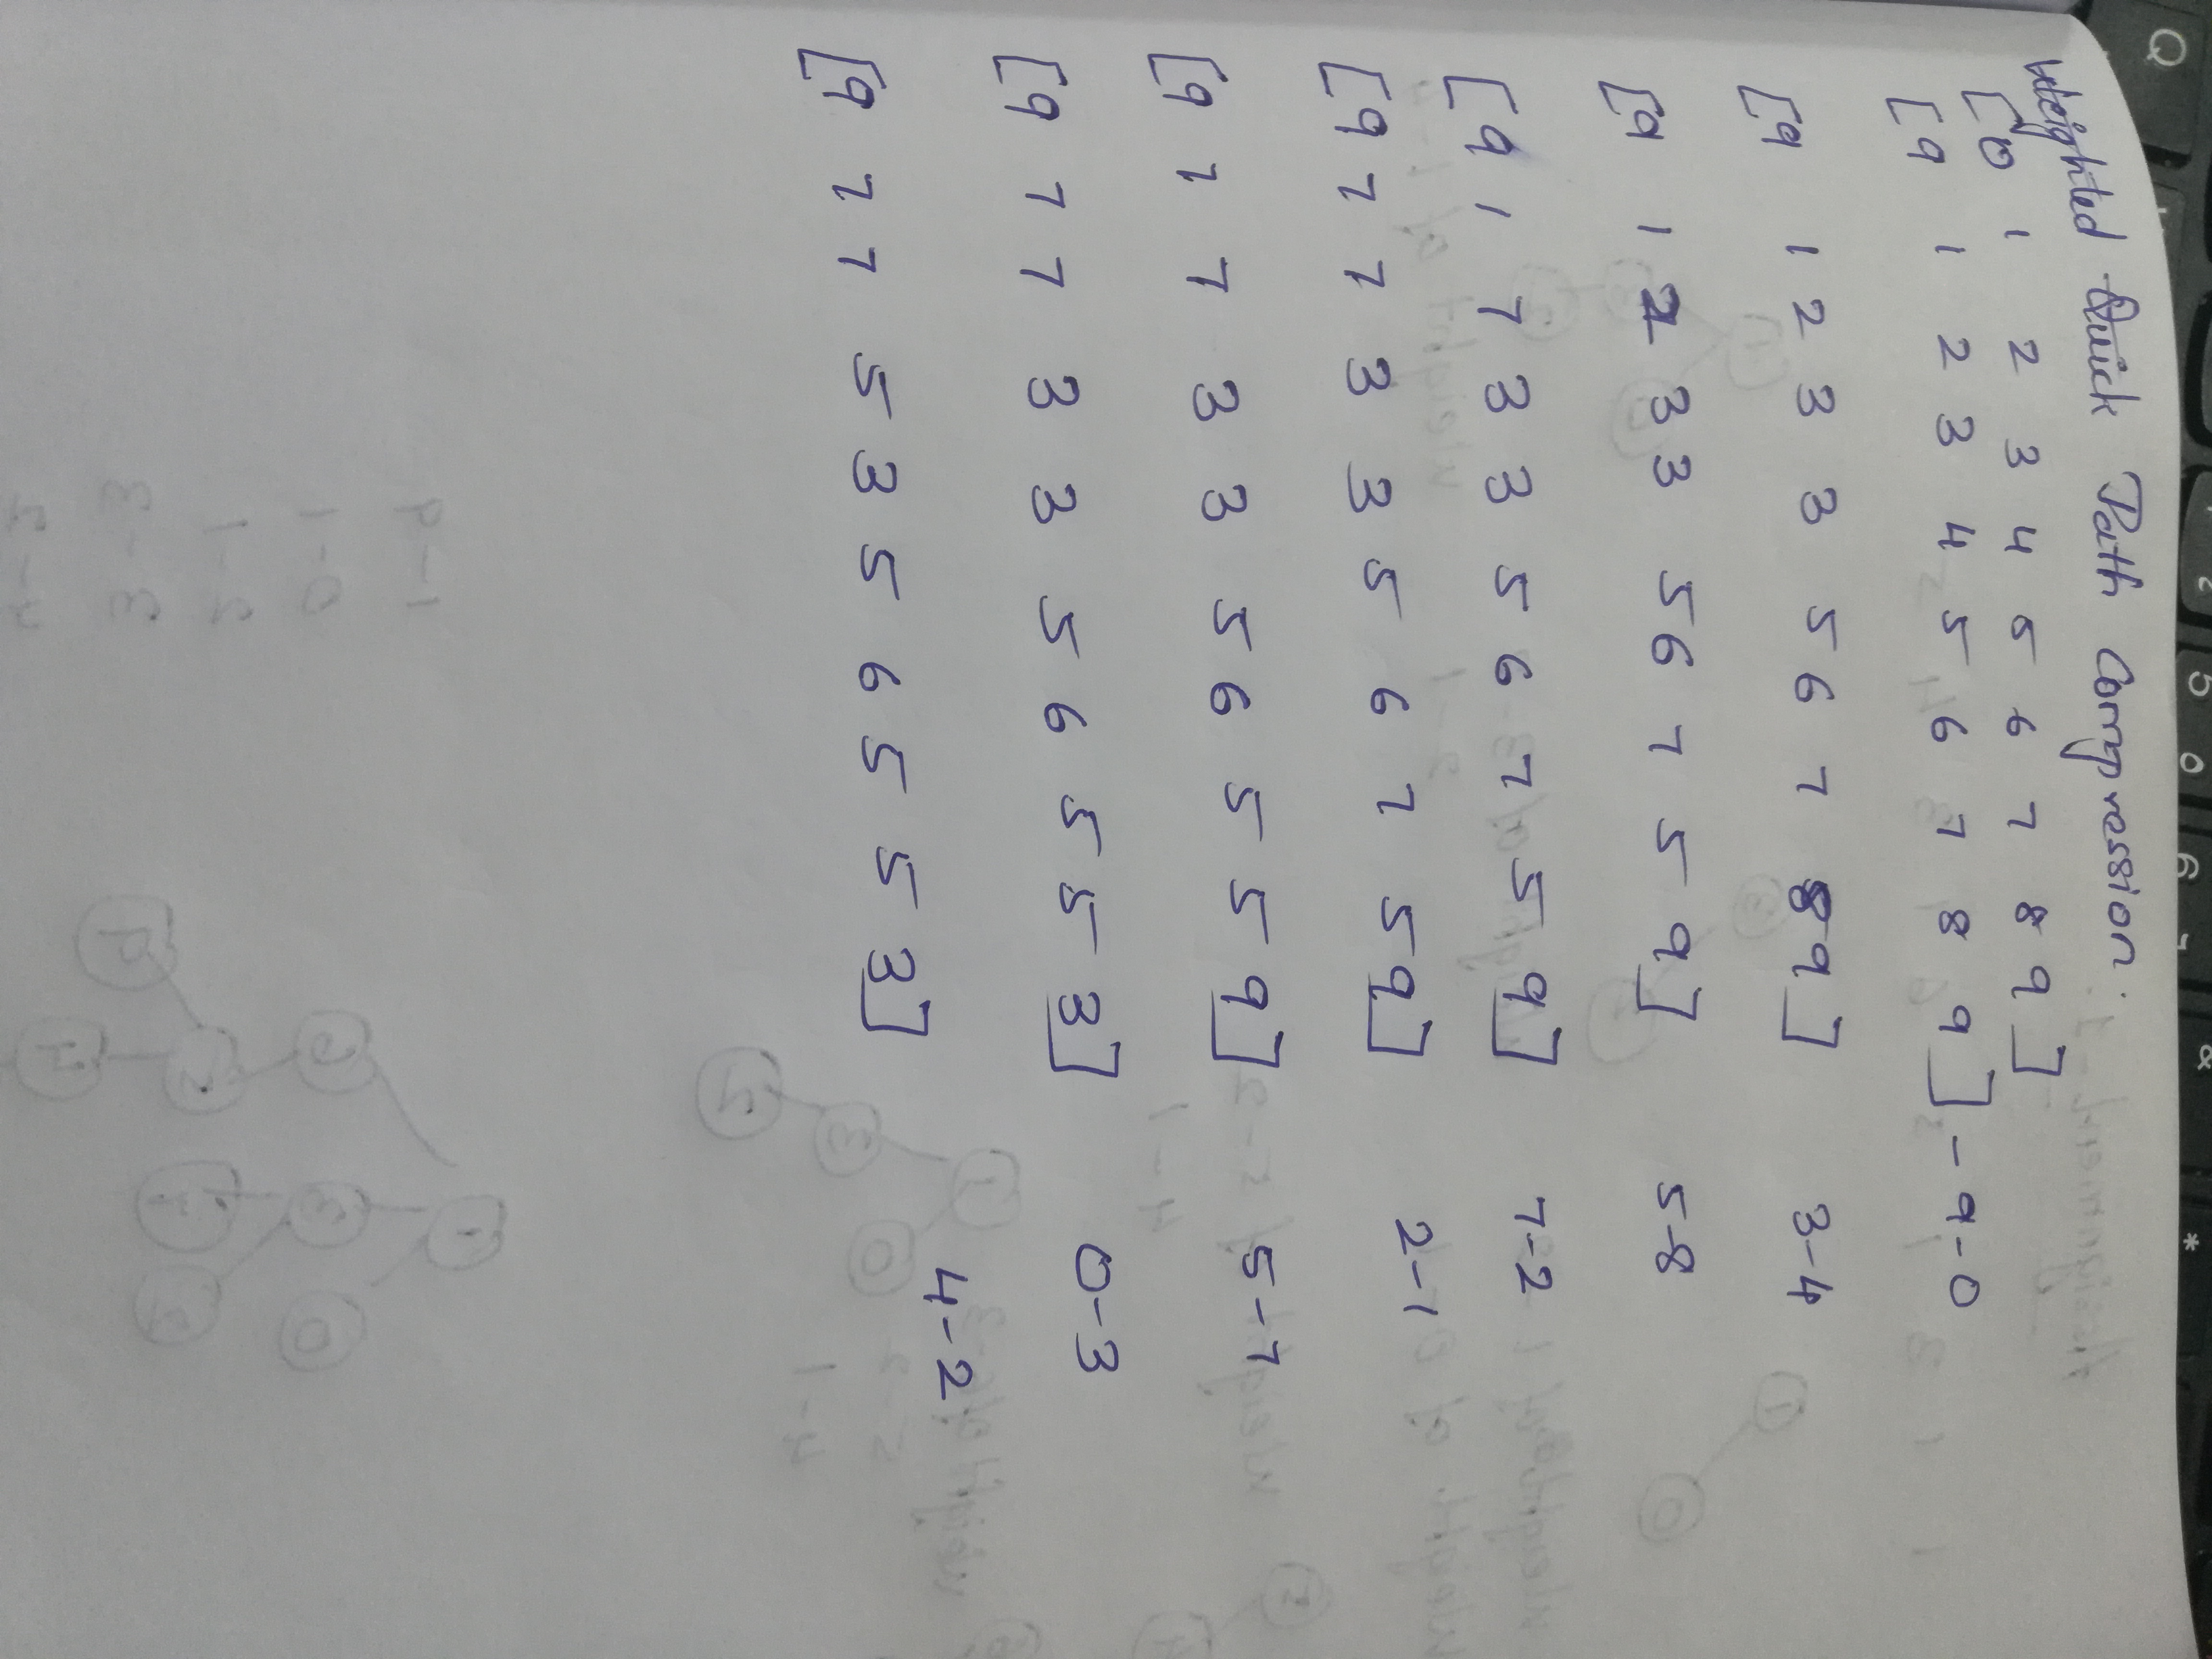 Weighted Quick Path Compression.
[0 1 2 3 4 5 6 7 8 9]
[9 1 2 3 4 5 6 7 8 9] - 9-0
[9 1 2 3 3 5 6 7 8 9] 3-4
[9 1 2 3 3 5 6 7 5 9] 5-8
[9 1 7 3 3 5 6 7 5 9] 7-2
[9 7 7 3 3 5 6 7 5 9] 2-1
[9 7 7 3 3 5 6 5 5 9] 5-7
[9 7 7 3 3 5 6 5 5 3] 0-3
4-2
[9 7 7 5 3 5 6 5 5 3]